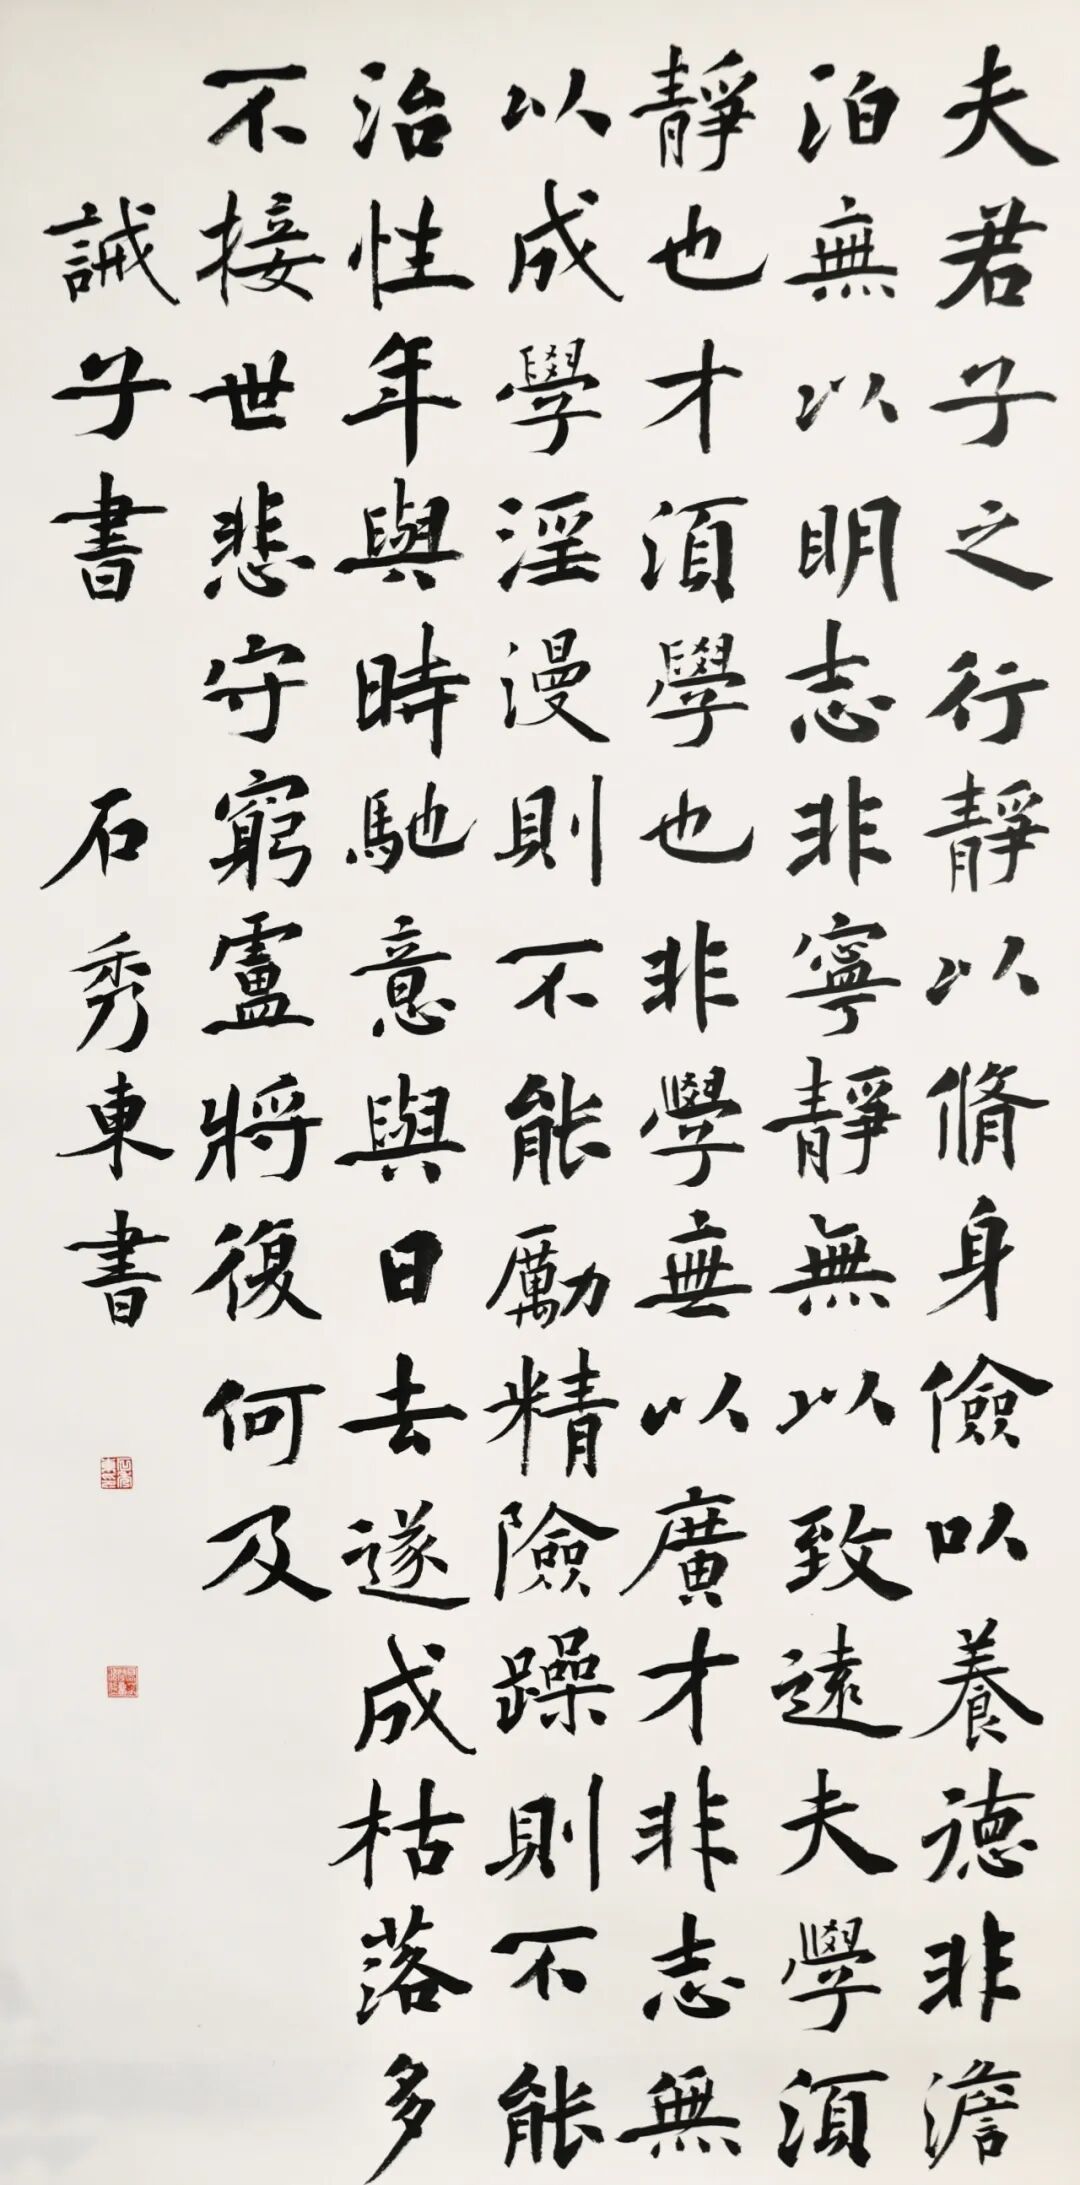 夫君子之行靜以脩身儉以養德非澹
泊無以明志非寧靜無以致遠夫學須
靜也才須學也非學無以廣才非志無
以成學淫漫則不能勵精險躁則不能
治性年與時馳意與日去遂成枯落多
不接世悲守窮廬將復何及
誡子書 石秀東書